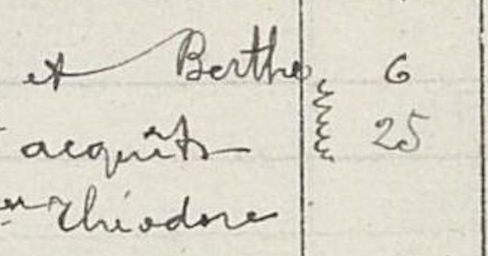 et Berthe 6
acquits 25
Théodore